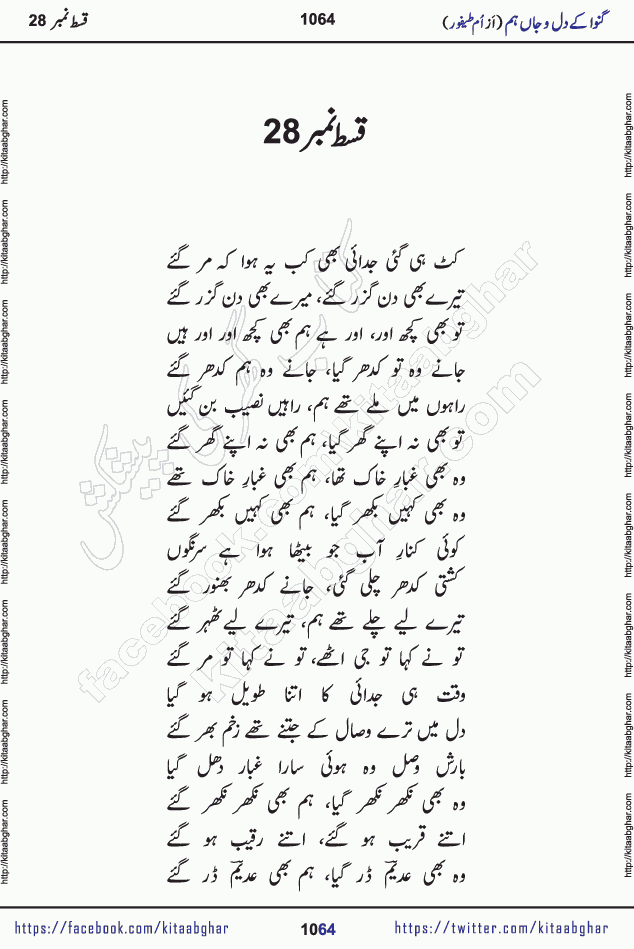 گنوا کے دل و جاں ہم (از اُم طیفور) 1064 قسط نمبر 28
قسط نمبر 28
کٹ ہی گئی جدائی بھی کب یہ ہوا کہ مر گئے
تیرے بھی دن گزر گئے، میرے بھی دن گزر گئے
تو بھی کچھ اور، اور ہے ہم بھی کچھ اور اور ہیں
جانے وہ تو کدھر گیا، جانے وہ ہم کدھر گئے
راہوں میں ملے تھے ہم، راہیں نصیب بن گئیں
تو بھی نہ اپنے گھر گیا، ہم بھی نہ اپنے گھر گئے
وہ بھی غبارِ خاک تھا، ہم بھی غبارِ خاک تھے
وہ بھی کہیں بکھر گیا، ہم بھی کہیں بکھر گئے
کوئی کنارِ آب جو بیٹھا ہوا ہے سرنگوں
کشتی کدھر چلی گئی، جانے کدھر بھنور گئے
تیرے لیے چلے تھے ہم، تیرے لیے ٹھہر گئے
تو نے کہا تو جی اٹھے، تو نے کہا تو مر گئے
وقت ہی جدائی کا اتنا طویل ہو گیا
دل میں ترے وصال کے جتنے تھے زخم بھر گئے
بارش وصل وہ ہوئی سارا غبار دھل گیا
وہ بھی نکھر نکھر گیا، ہم بھی نکھر نکھر گئے
اتنے قریب ہو گئے، اتنے رقیب ہو گئے
وہ بھی عدیمؔ ڈر گیا، ہم بھی عدیمؔ ڈر گئے
کتاب گھر کی پیشکش
facebook.com/kitaabghar
kitaabghar.com
http://kitaabghar.com http://kitaabghar.com http://kitaabghar.com http://kitaabghar.com http://kitaabghar.com http://kitaabghar.com http://kitaabghar.com http://kitaabghar.com
http://kitaabghar.com http://kitaabghar.com http://kitaabghar.com http://kitaabghar.com http://kitaabghar.com http://kitaabghar.com http://kitaabghar.com http://kitaabghar.com
https://facebook.com/kitaabghar 1064 https://twitter.com/kitaabghar